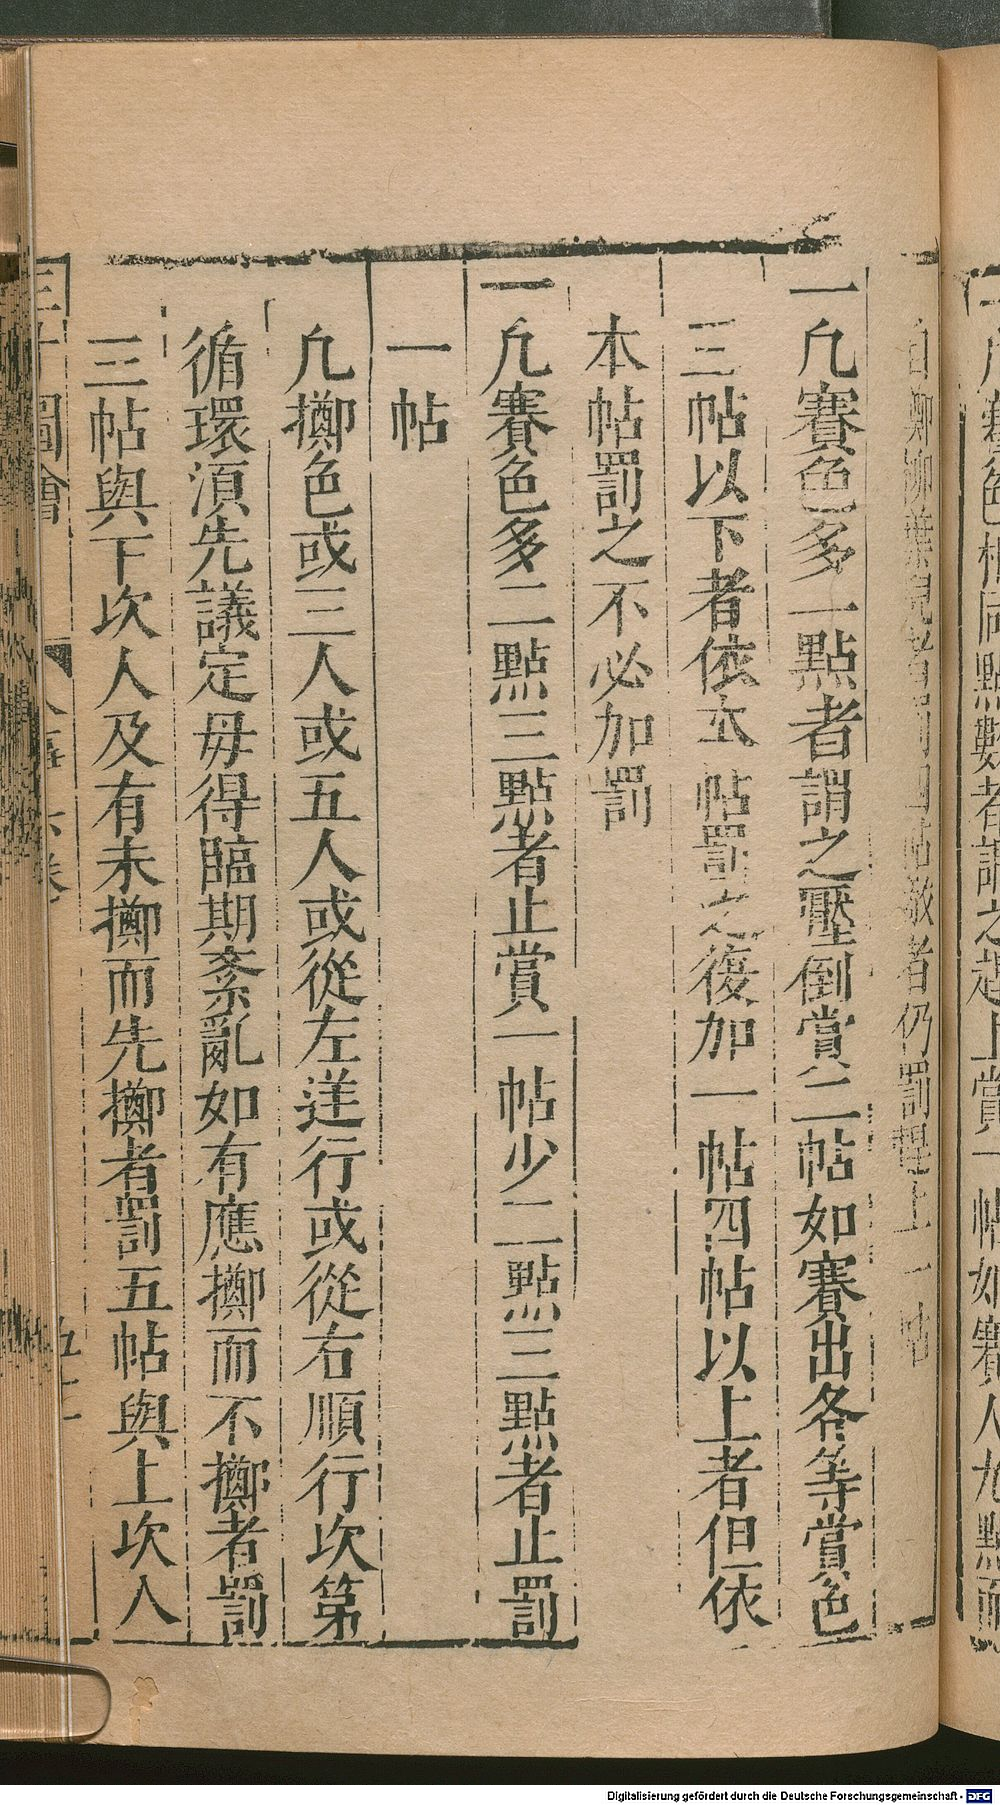 凢賽色相同點數者謂之趕上賞一帖如賽人九點而
自擲柳葉兒者罰四帖敵者仍罰趕上一帖
一凢賽色多一點者謂之壓倒賞二帖如賽出各等賞色
三帖以下者依本帖罰之復加一帖四帖以上者但依
本帖罰之不必加罰
一凢賽色多二點三點者止賞一帖少二點三點者止罰
一帖
凢擲色或三人或五人或從左逆行或從右順行次第
循環須先議定毋得臨期紊亂如有應擲而不擲者罰
三帖與下次人及有未擲而先擲者罰五帖與上次人
三才圖會 人事六卷
Digitalisierung gefördert durch die Deutsche Forschungsgemeinschaft - DFG